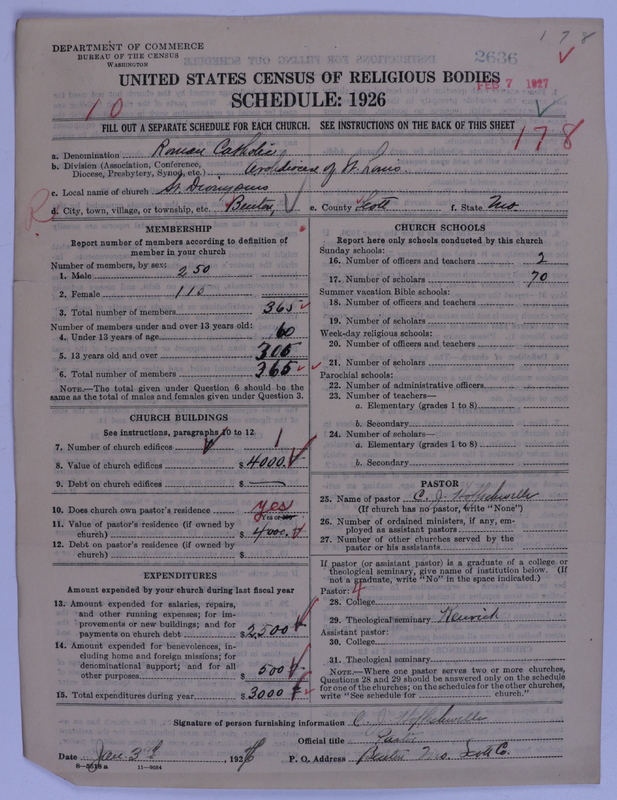 178
DEPARTMENT OF COMMERCE
BUREAU OF THE CENSUS
WASHINGTON
2636
FEB 7 1927
UNITED STATES CENSUS OF RELIGIOUS BODIES
SCHEDULE: 1926
10
178
FILL OUT A SEPARATE SCHEDULE FOR EACH CHURCH. SEE INSTRUCTIONS ON THE BACK OF THIS SHEET
a. Denomination Roman Catholic
b. Division (Association, Conference,
Diocese, Presbytery, Synod, etc.) Archdiocese of St. Louis.
c. Local name of church St. Dionysius
d. City, town, village, or township, etc. Benton, e. County Scott f. State Mo.
MEMBERSHIP
Report number of members according to definition of
member in your church
Number of members, by sex:
1. Male 250
2. Female 115
3. Total number of members 365
Number of members under and over 13 years old:
4. Under 13 years of age 60
5. 13 years old and over 305
6. Total number of members 365
NOTE.—The total given under Question 6 should be the
same as the total of males and females given under Question 3.
CHURCH BUILDINGS
See instructions, paragraphs 10 to 12
7. Number of church edifices 1
8. Value of church edifices $ 4000.
9. Debt on church edifices $ —
10. Does church own pastor's residence yes
Yes or no
11. Value of pastor's residence (if owned by
church) $ 4000.
12. Debt on pastor's residence (if owned by
church) $
EXPENDITURES
Amount expended by your church during last fiscal year
13. Amount expended for salaries, repairs,
and other running expenses; for im-
provements or new buildings; and for
payments on church debt $ 2500
14. Amount expended for benevolences, in-
cluding home and foreign missions; for
denominational support; and for all
other purposes $ 500
15. Total expenditures during year $ 3000
CHURCH SCHOOLS
Report here only schools conducted by this church
Sunday schools:
16. Number of officers and teachers 2
17. Number of scholars 70
Summer vacation Bible schools:
18. Number of officers and teachers
19. Number of scholars
Week-day religious schools:
20. Number of officers and teachers
21. Number of scholars
Parochial schools:
22. Number of administrative officers
23. Number of teachers—
a. Elementary (grades 1 to 8)
b. Secondary
24. Number of scholars—
a. Elementary (grades 1 to 8)
b. Secondary
PASTOR
25. Name of pastor C. J.
(If church has no pastor, write "None")
26. Number of ordained ministers, if any, em-
ployed as assistant pastors
27. Number of other churches served by the
pastor or his assistants
If pastor (or assistant pastor) is a graduate of a college or
theological seminary, give name of institution below. (If
not a graduate, write "No" in the space indicated.)
Pastor: 4
28. College
29. Theological seminary Kenrick
Assistant pastor:
30. College
31. Theological seminary
NOTE.—Where one pastor serves two or more churches,
Questions 28 and 29 should be answered only on the schedule
for one of the churches; on the schedules for the other churches,
write "See schedule for church."
Signature of person furnishing information C. J.
Official title Pastor
Date Jan. 3rd 1926 P. O. Address Benton Mo. Scott Co.
8—5618 a 11—9034